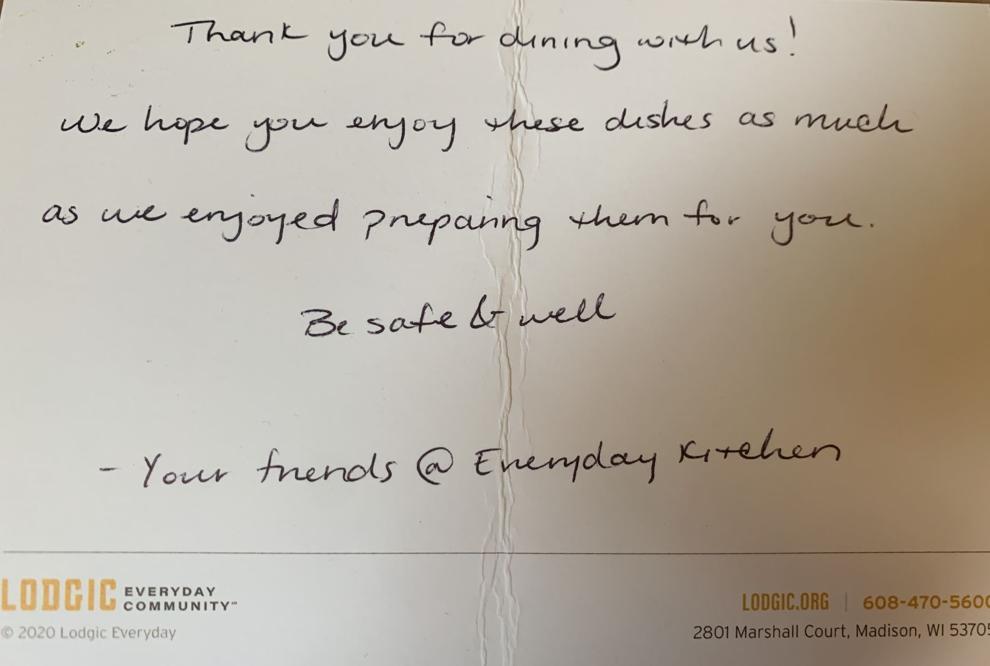 Thank you for dining with us!
We hope you enjoy these dishes as much
as we enjoyed preparing them for you.
Be safe & well
- Your friends @ Everyday Kitchen
LODGIC EVERYDAY COMMUNITY℠
LODGIC.ORG | 608-470-5600
© 2020 Lodgic Everyday
2801 Marshall Court, Madison, WI 53705